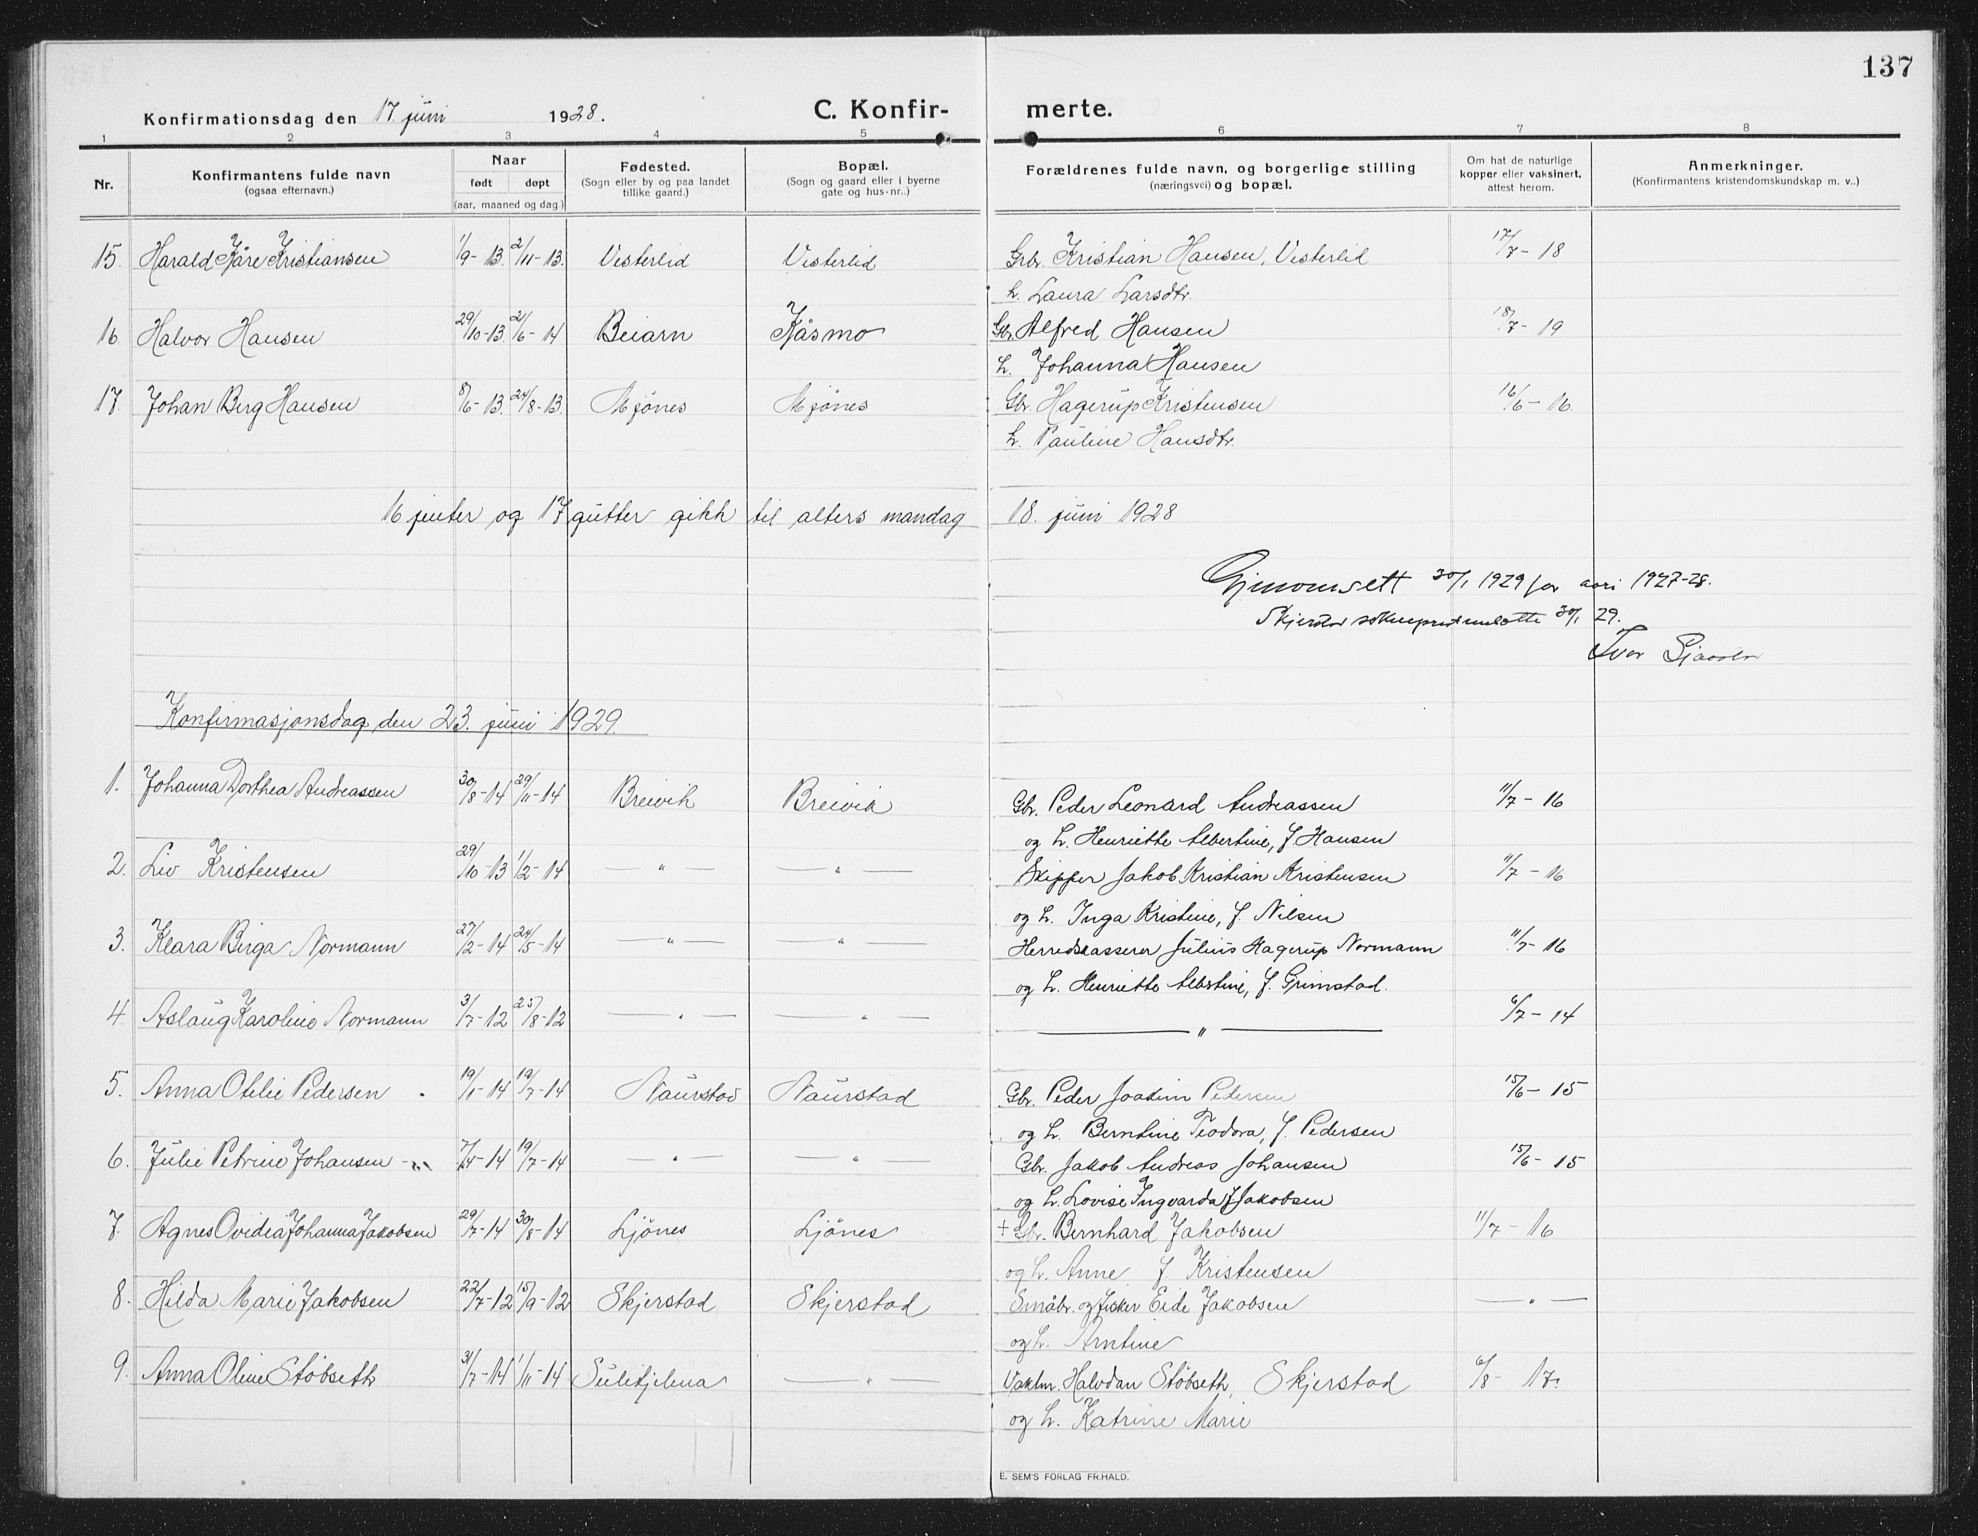 137
Konfirmationsdag den 17. juni 1928.
C. Konfir- merte.
1 2 3 4 5 6 7 8
Nr.
Konfirmantens fulde navn
(ogsaa efternavn.)
Naar
født døpt
(aar, maaned og dag)
Fødested.
(Sogn eller by og paa landet
tillike gaard.)
Bopæl.
(Sogn og gaard eller i byerne
gate og hus-nr..)
Forældrenes fulde navn, og borgerlige stilling
(næringsvei) og bopæl.
Om hat de naturlige
kopper eller vaksinert,
attest herom.
Anmerkninger.
(Konfirmantens kristendomskundskap m. v..)
15. Harald Kåre Kristiansen 1/9-13. 2/11-13. Visterlid Visterlid Grbr. Kristian Hansen, Visterlid 17/7-18
h. Laura Larsdtr.
16 Halvor Hansen 29/10-13. 21/6-14 Beiarn Kåsmo Gbr. Alfred Hansen 18/7-19
h. Johanna Hansen
17. Johan Berg Hansen 8/6-13. 24/8-13. Mjönes Mjönes Gbr. Hagerup Kristensen 16/6-16.
h. Pauline Hansdtr.
16 jenter og 17 gutter gikk til alters mandag 18. juni 1928
30/1 1929 for 1927-28.
Skjerstad 30/1 29.
Konfirmasjonsdag den 23. juni 1929.
1. Johanna Dorthea Andreassen 30/8-14 29/11-14 Breivik Breivik Gbr. Peder Leonard Andreassen 11/7-16
og h. Henriette Albertine, f. Hansen
2. Liv Kristensen 29/10-13 1/2-14 — " — — " — Skipper Jakob Kristian Kristensen 11/7-16
og h. Inga Kristine, f. Nilsen
3. Klara Birga Normann 27/2-14 24/5-14 — " — — " Herredskasserer Julius Hagerup Normann 11/7-16
og h. Henriette Albertine, f. Grimstad.
4. Aslaug Karoline Normann 3/7-12 25/8-12 — " — — " — — " — 6/7-14
5. Anna Otelie Pedersen 19/1-14 19/7-14 Naurstad Naurstad Gbr. Peder Joakim Pedersen 15/6-15
og h. Berntine Teodora, f. Pedersen
6. Julie Petrine Johansen 7/4-14 19/7-14 — " — — " — Gbr. Jakob Andreas Johansen 15/6-15
og h. Lovise Ingvarda f. Jakobsen
7. Agnes Ovidia Johanna Jakobsen 29/7-14 30/8-14 Ljönes Ljönes + Gbr. Bernhard Jakobsen 11/7-16
og h. Anne f. Kristensen
8. Hilda Marie Jakobsen 22/7-12 15/9-12 Skjerstad Skjerstad Småbr. og fisker Eide Jakobsen — " —
og h. Arntine
9. Anna Oline Stöbseth 31/7-14 1/11-14 Sulitjelma — " — Vaktm. Halvdan Stöbseth, Skjerstad 6/8-17.
og h. Katrine Marie
E. SEM'S FORLAG FR.HALD.